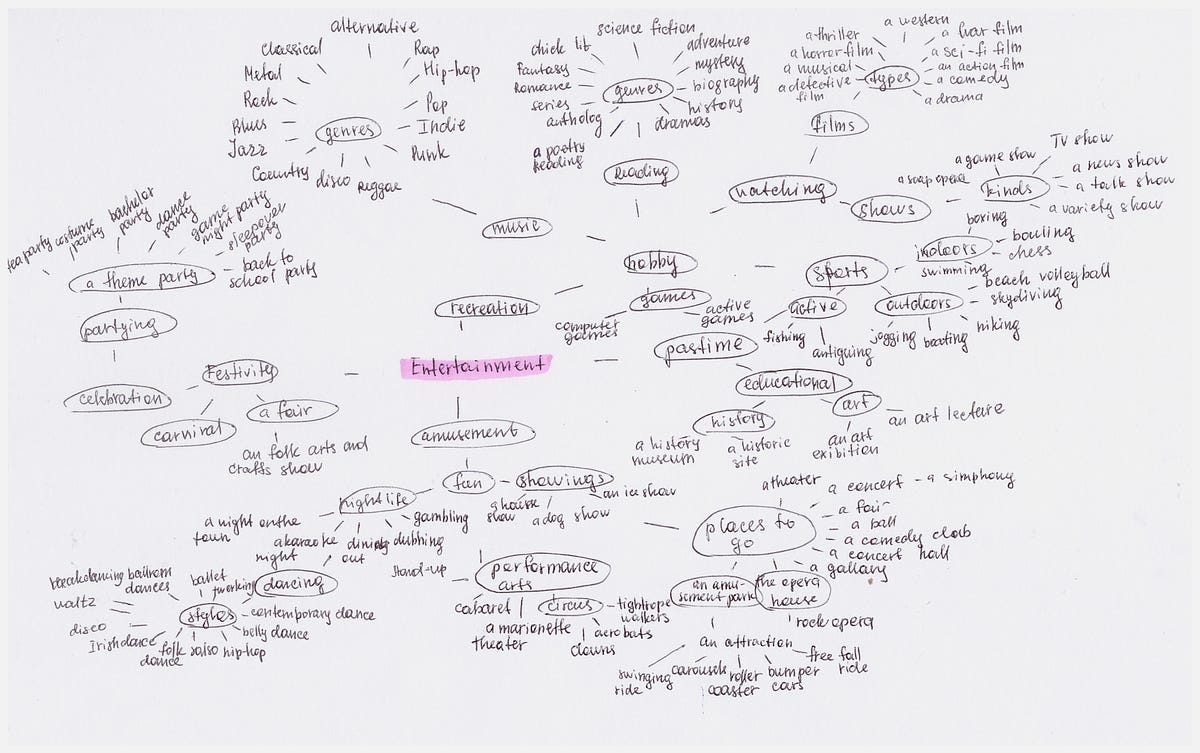 alternative
classical
Rap
Metal
Hip-hop
Rock
Pop
Blues
Indie
genres
Jazz
Punk
Country
disco
Reggae
music
science fiction
chick lit
adventure
Fantasy
mystery
Romance
biography
genres
series
history
antholog
dramas
a poetry
Reading
Reading
a western
a thriller
a war film
a horror film
a sci-fi film
a musical
an action film
a detective
film
types
a comedy
a drama
films
watching
TV show
a game show
a news show
a soap opera
kinds
a talk show
shows
a variety show
boring
indoors
bowling
chess
swimming
hobby
sports
beach volleyball
outdoors
skydiving
games
active
active
games
computer
games
fishing
jogging
boating
hiking
antiguing
pastime
recreation
tea party
costume
party
bachelor
party
dance
party
game
night party
sleepover
party
back to
school party
a theme party
partying
Entertainment
Festivity
celebration
a fair
carnival
an folk arts and
crafts show
educational
art
an art lecture
history
a history
museum
a historic
site
an art
exibition
amusement
fun
showings
a house
show
a dog show
an ice show
night life
a night on the
town
a karaoke
night
dining
out
dubbing
gambling
dancing
breakdancing
ballroom
dances
ballet
twerking
waltz
styles
contemporary dance
disco
belly dance
Irish dance
folk
dance
salso
hip-hop
Stand-up
performance
arts
cabaret
circus
tightrope
walkers
a marionette
theater
acrobats
clowns
places to
go
a theater
a concert - a simphony
a fair
a ball
a comedy club
a concert hall
a gallary
an amu-
sement park
the opera
house
rock opera
an attraction
swinging
ride
carousels
roller
coaster
bumper
cars
free fall
ride